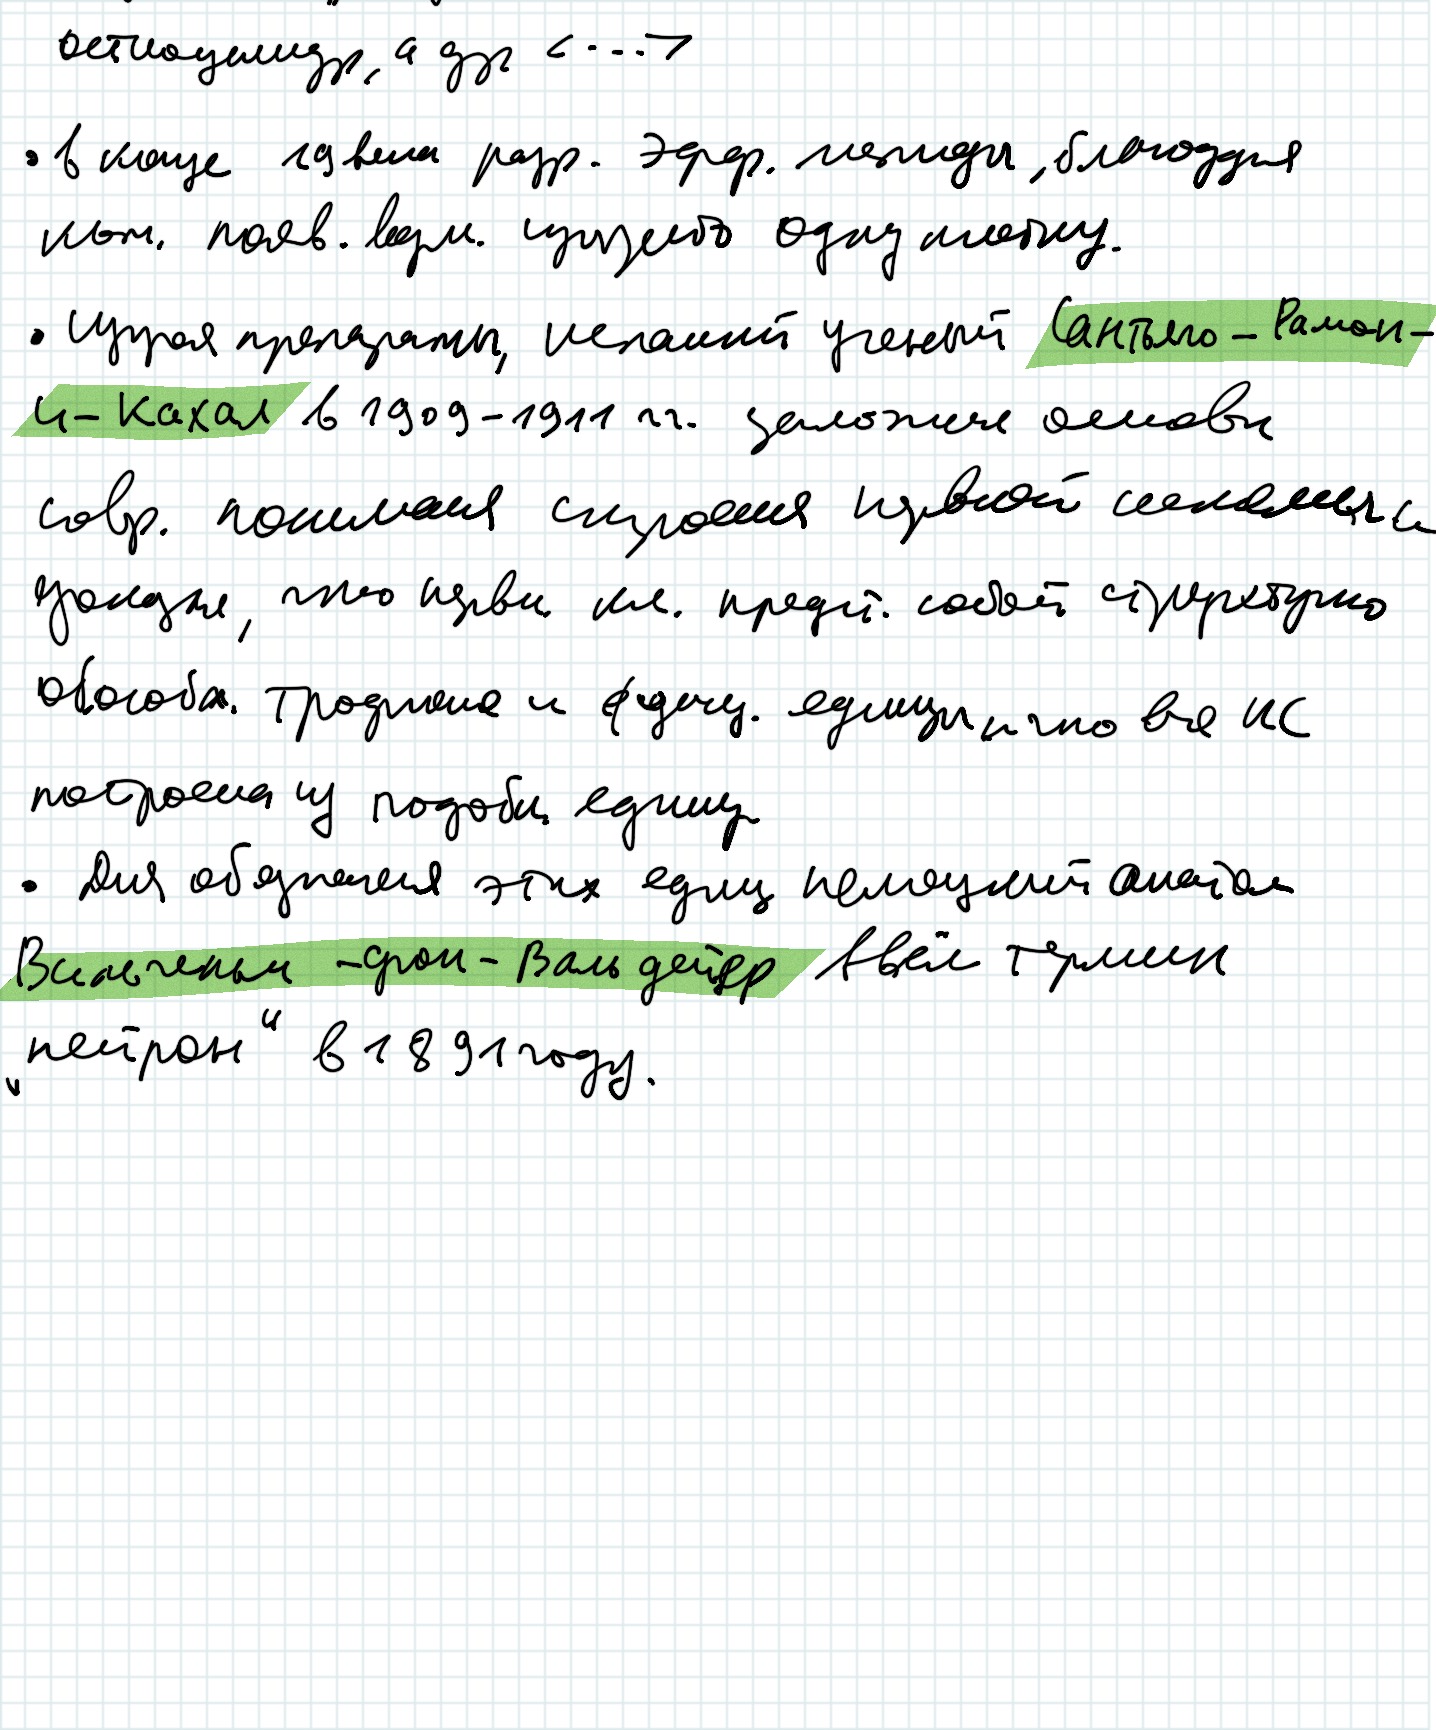 а др. <...>
• в конце 19 века разр. эфф. методы, благодаря
кот. появ. возм. изучать одну клетку.
• Изучая препараты, испанкий ученый Сантьяго-Рамон-
и-Кахал в 1909-1911 гг. заложил основы
совр. понимания строения нервной системы и
что нервн. кл. предст. собой структурно
обособл. трофическ и единицы и что вся НС
построена из подобн. единиц
• Для обозначения этих единиц немецкий анатом
Вильгельм -фон-Вальдейер ввёл термин
„нейрон“ в 1891 году.